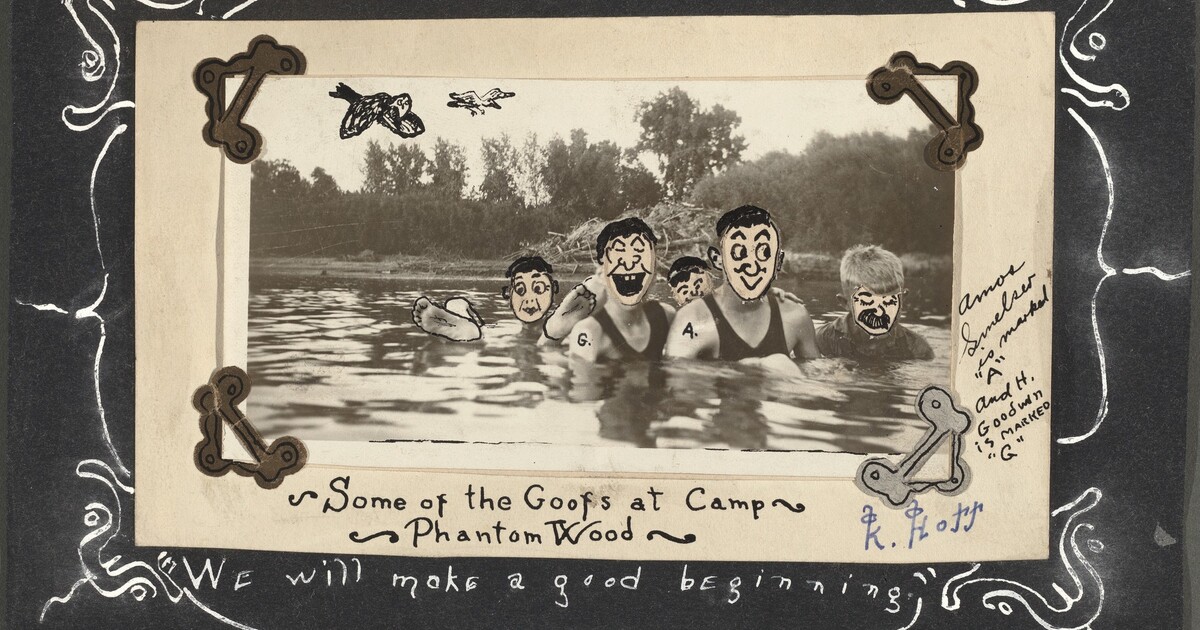 G.
A.
Amos
Smelser
is marked
"A"
and H.
Goodwin
is MARKED
"G"
Some of the Goofs at Camp
Phantom Wood
K. Hoff
"WE will make a good beginning,"